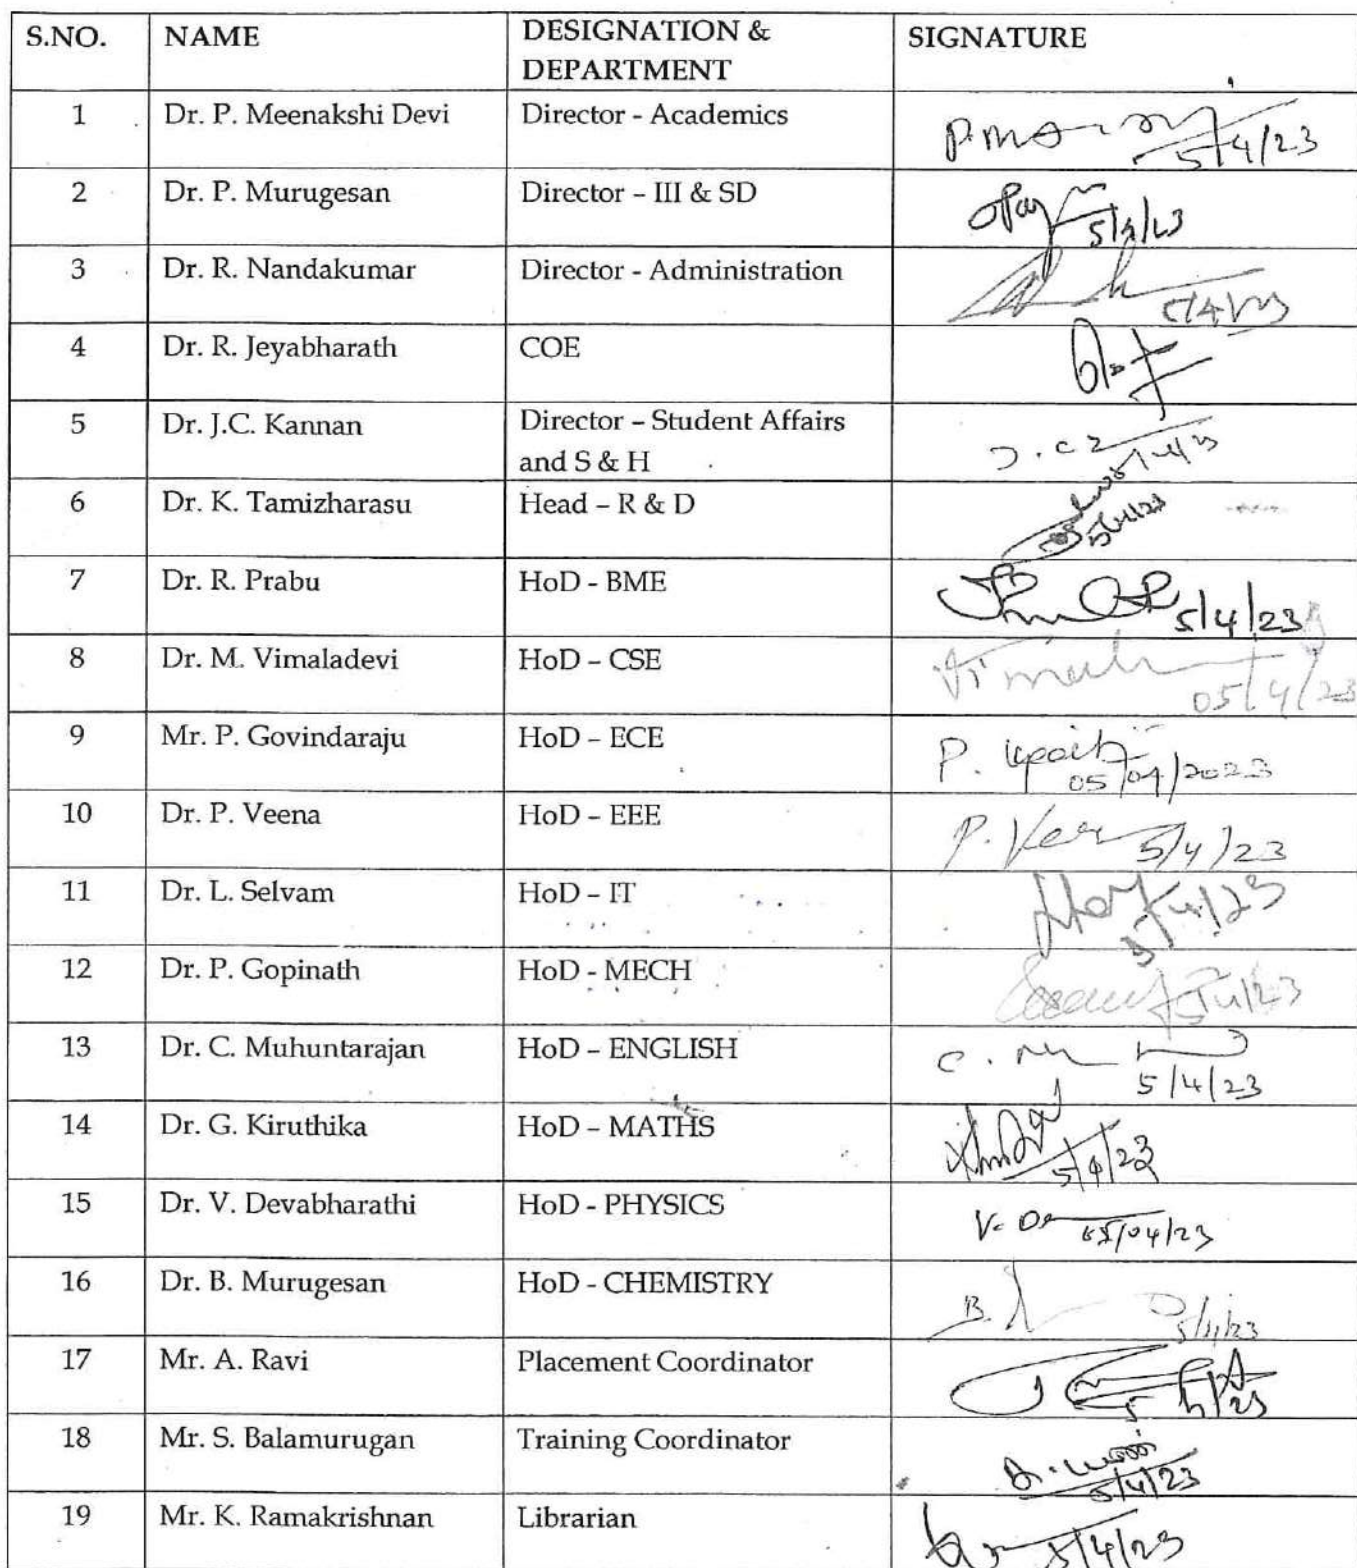 S.NO. NAME DESIGNATION & DEPARTMENT SIGNATURE
1 Dr. P. Meenakshi Devi Director - Academics 5/4/23
2 Dr. P. Murugesan Director – III & SD 5/4/23
3 Dr. R. Nandakumar Director - Administration 5/4/23
4 Dr. R. Jeyabharath COE
5 Dr. J.C. Kannan Director – Student Affairs and S & H J.C
6 Dr. K. Tamizharasu Head – R & D 5/4/23
7 Dr. R. Prabu HoD - BME 5/4/23
8 Dr. M. Vimaladevi HoD – CSE 05/4/23
9 Mr. P. Govindaraju HoD – ECE P. 05/04/2023
10 Dr. P. Veena HoD – EEE P. 5/4/23
11 Dr. L. Selvam HoD – IT 5/4/23
12 Dr. P. Gopinath HoD - MECH 5/4/23
13 Dr. C. Muhuntarajan HoD – ENGLISH C. 5/4/23
14 Dr. G. Kiruthika HoD – MATHS 5/4/23
15 Dr. V. Devabharathi HoD - PHYSICS V. 05/04/23
16 Dr. B. Murugesan HoD - CHEMISTRY B. 5/4/23
17 Mr. A. Ravi Placement Coordinator 5/4/23
18 Mr. S. Balamurugan Training Coordinator 5/4/23
19 Mr. K. Ramakrishnan Librarian 5/4/23